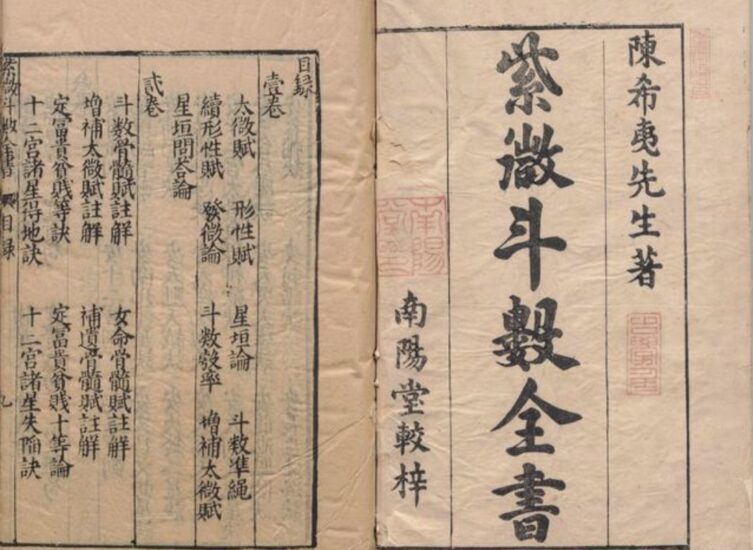 陳希夷先生著
紫微斗數全書
南陽堂較梓
南陽堂
目錄
壹卷
太微賦 形性賦 星垣論 斗数準繩
續形性賦 發微論 斗数彀率 增補太微賦
星垣問荅論
貳卷
斗数骨髓賦註解 女命骨髓賦註解
增補太微賦註解 補遺骨髓賦註解
定富貴貧賤等訣 定富貴貧賤十等論
十二宮諸星得地訣 十二宮諸星失陷訣
紫微斗数全書 目録 九